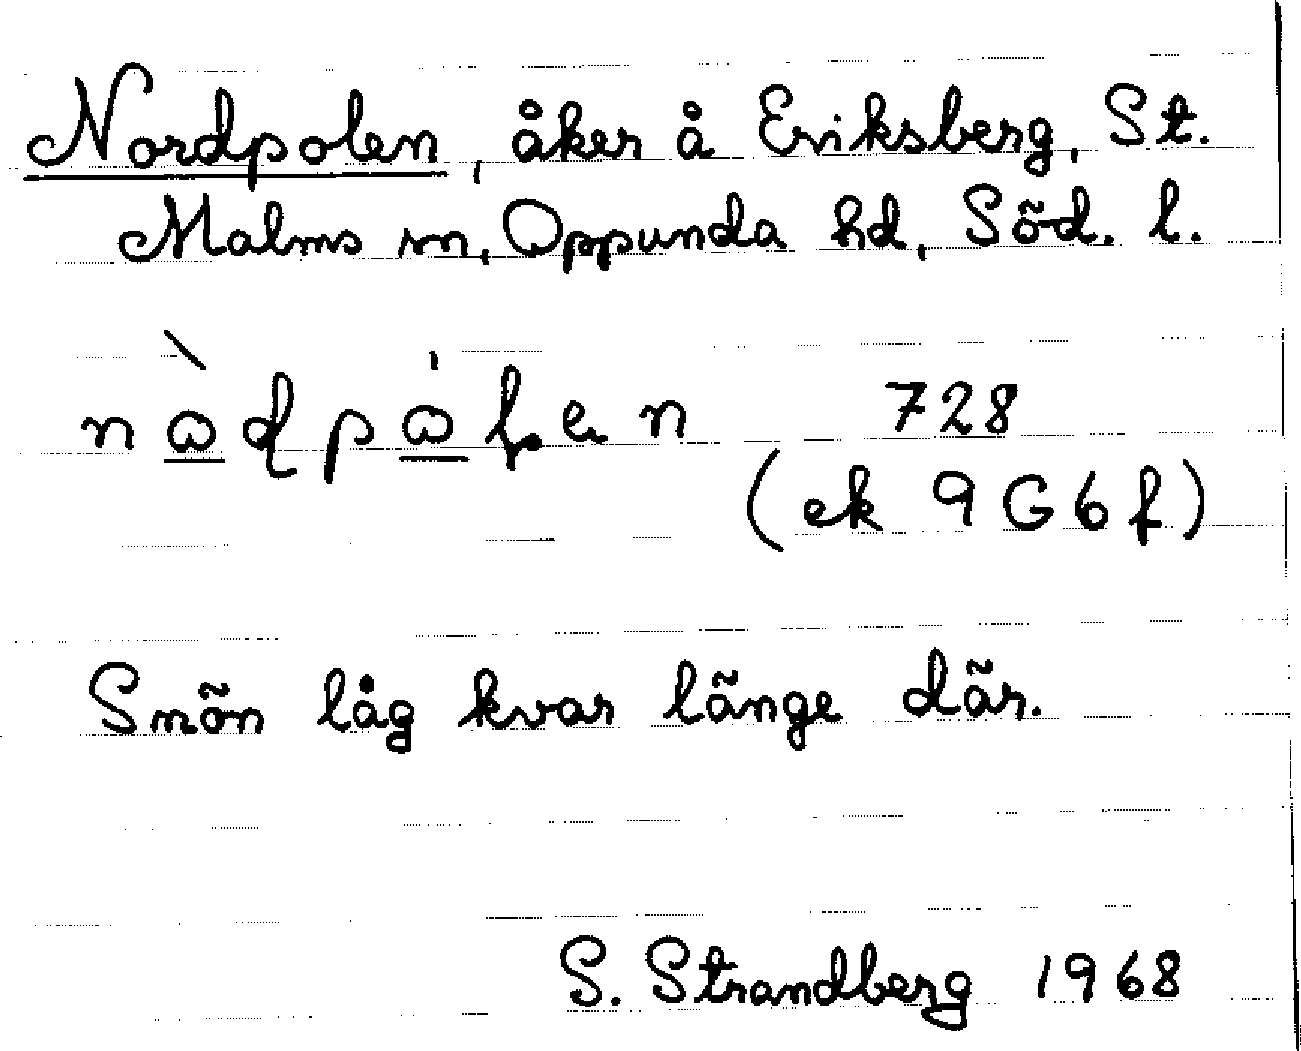 Nordpolen, åker å Eriksberg, St.
Malms sn, Oppunda hd, Söd. l.
nὼ̲ɖpω̲̇ɭen 728
(ek 9G6f)
Snön låg kvar länge där.
S. Strandberg 1968